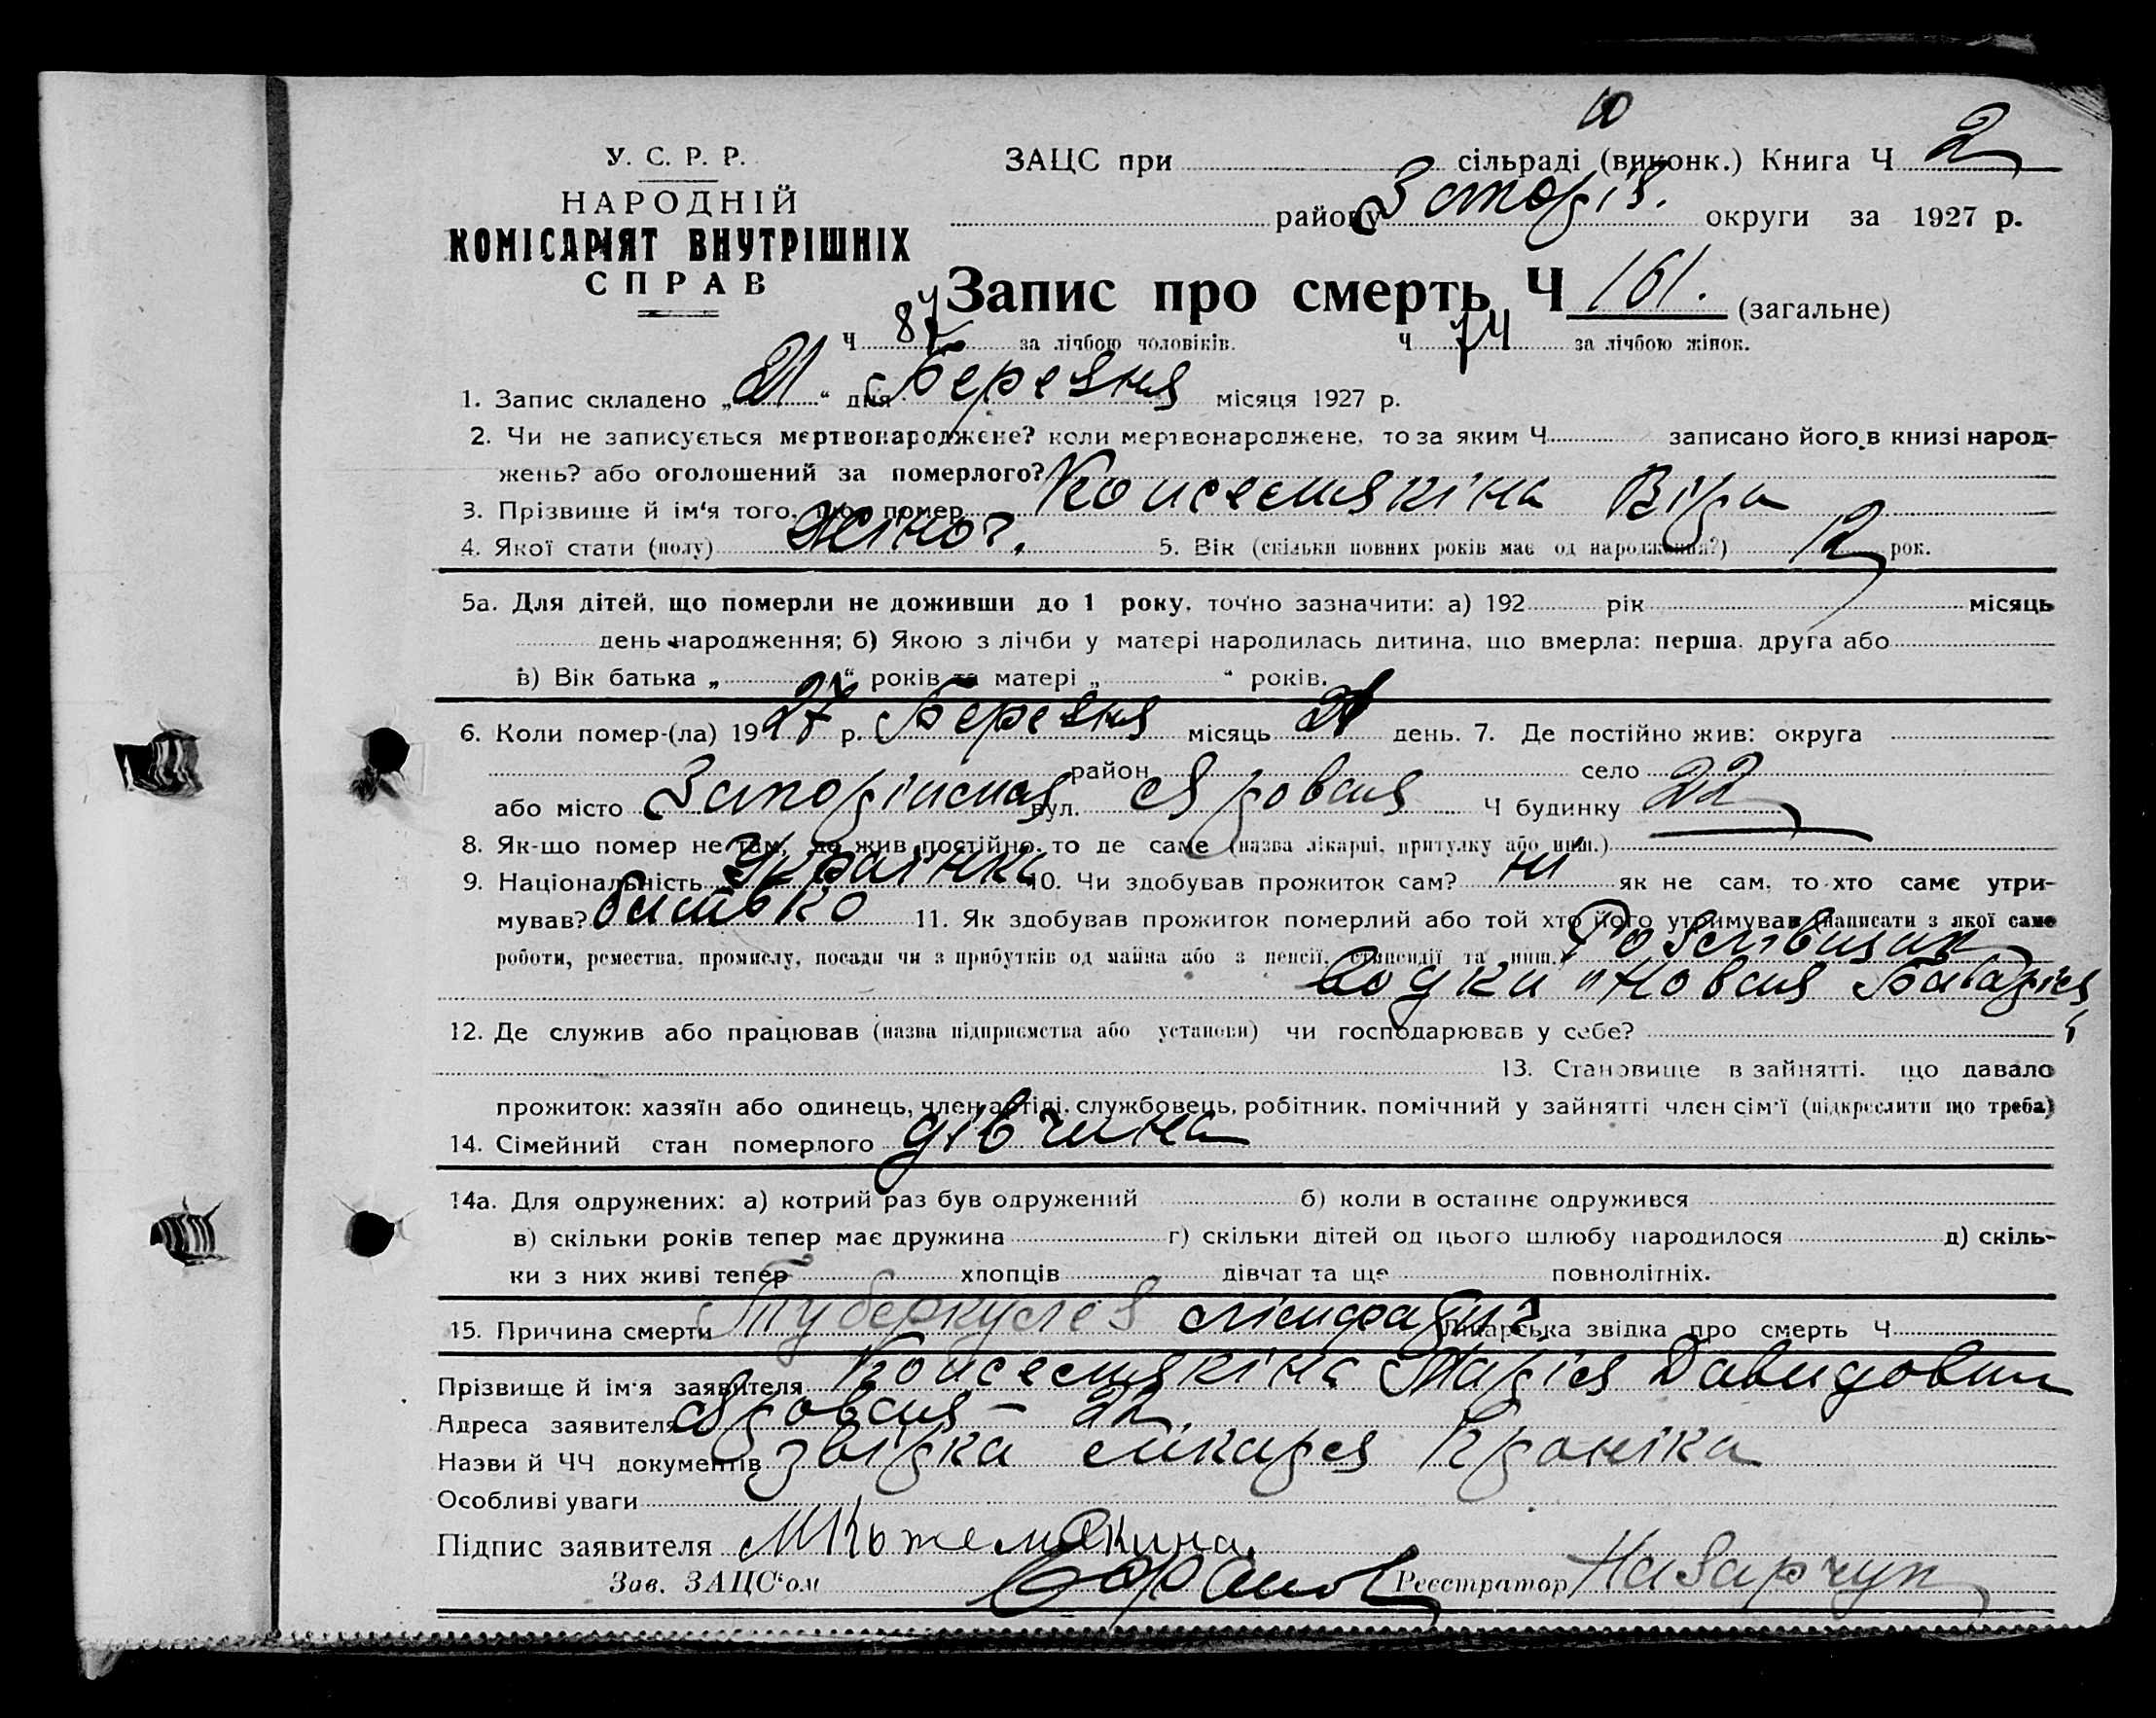 У. С. Р. Р.
НАРОДНІЙ
КОМІСАРІЯТ ВНУТРІШНІХ
СПРАВ
ЗАЦС при сільраді (виконк.) Книга Ч 2
району Запоріз. округи за 1927 р.
Запис про смерть Ч 161. (загальне)
Ч 87 за лічбою чоловіків. Ч 74 за лічбою жінок.
1. Запис складено „21“ дня Березня місяця 1927 р.
2. Чи не записується мертвонароджене? коли мертвонароджене, то за яким Ч записано його в книзі народ-
жень? або оголошений за померлого?
3. Прізвище й ім'я того, що помер Кожемякіна Віра
4. Якої стати (полу) жіноч. 5. Вік (скільки повних років має од народження?) 12 рок.
5а. Для дітей, що померли не доживши до 1 року, точно зазначити: а) 192 рік місяць
день народження; б) Якою з лічби у матері народилась дитина, що вмерла: перша, друга або
в) Вік батька „ “ років та матері „ “ років.
6. Коли помер-(ла) 1927 р. Березня місяць 21 день. 7. Де постійно жив: округа
район село
або місто Запоріжжя вул. Ч будинку 22
8. Як-що помер не там, де жив постійно, то де саме (назва лікарні, притулку або инш.)
9. Національність Українка 10. Чи здобував прожиток сам? ні як не сам, то хто саме утри-
мував? батько 11. Як здобував прожиток померлий або той хто його утримував (написати з якої саме
роботи, ремества, промислу, посади чи з прибутків од майна або з пенсії, стипендії та инш.) Розливщик
водки "Новая Баварія"
12. Де служив або працював (назва підприємства або установи) чи господарював у себе?
13. Становище в зайнятті, що давало
прожиток: хазяїн або одинець, член артілі, службовець, робітник, помічний у зайнятті член сім'ї (підкреслити що треба)
14. Сімейний стан померлого дівчина
14а. Для одружених: а) котрий раз був одружений б) коли в останнє одружився
в) скільки років тепер має дружина г) скільки дітей од цього шлюбу народилося д) скіль-
ки з них живі тепер хлопців дівчат та ще повнолітніх.
15. Причина смерти Туберкулез Лікарська звідка про смерть Ч
Прізвище й ім'я заявителя Кожемякіна Марія Давидовна
Адреса заявителя 22.
Назви й ЧЧ документів звідка лікаря Кроніка
Особливі уваги
Підпис заявителя МКожемякина
Зав. ЗАЦС'ом Реєстратор Назарчук